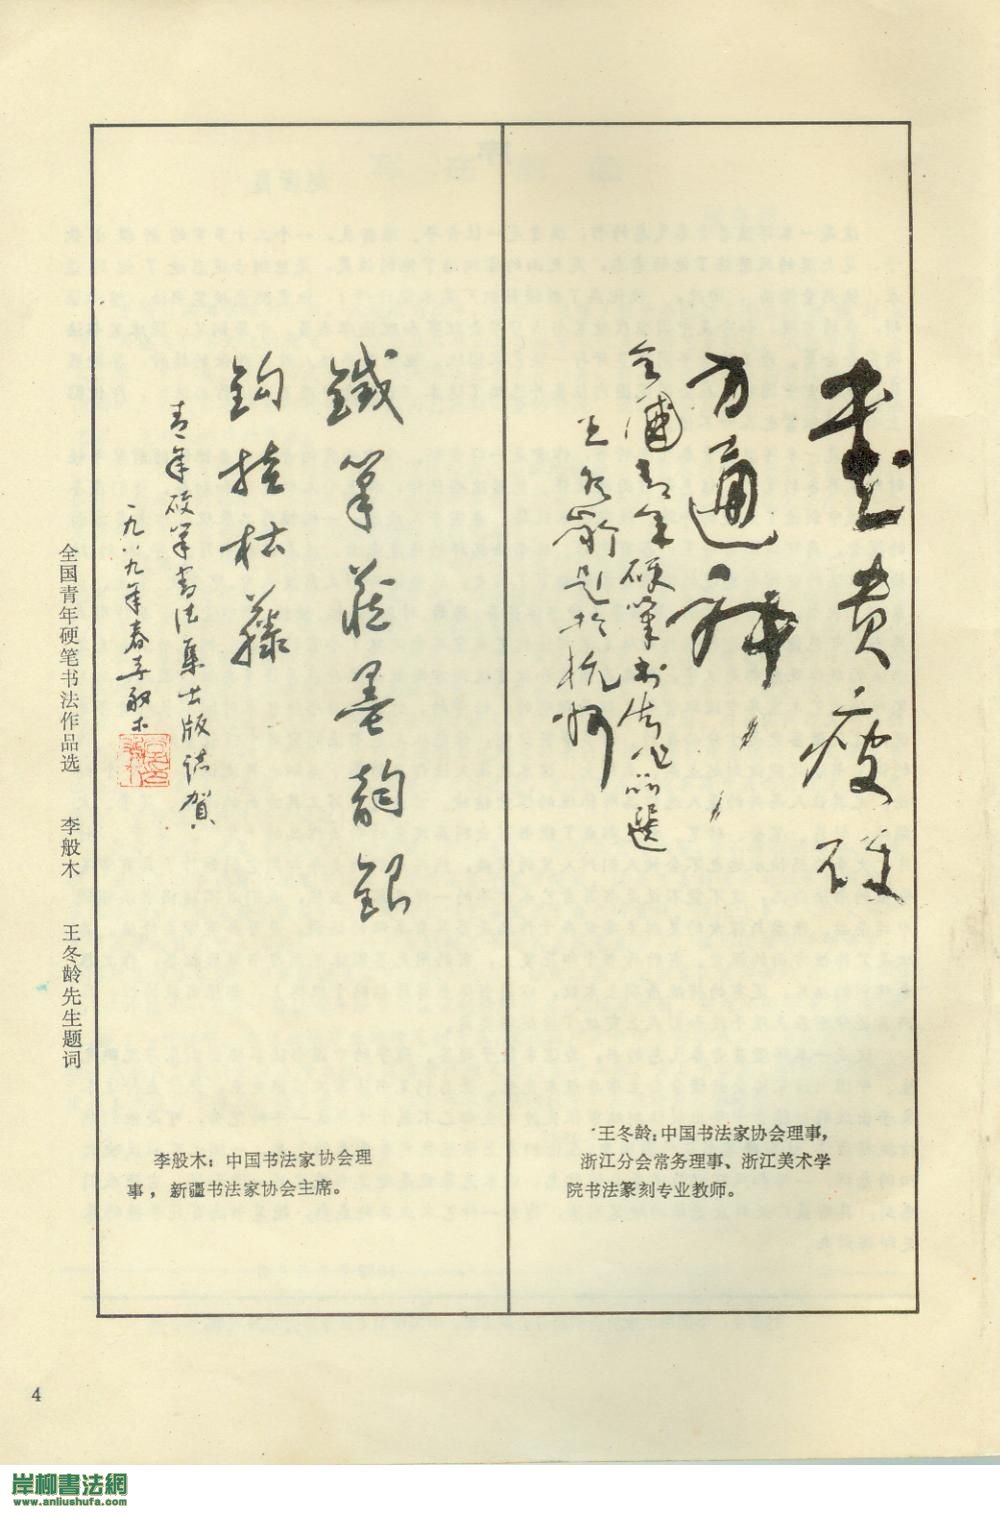 書貴瘦硬
方通神
全國青年硬筆書法作品選
王冬齡題於杭州
鐵筆蒼墨韵銀
鈎掛枯藤
青年硬筆書法集出版誌賀
一九八九年春李般木
全国青年硬笔书法作品选　李般木　王冬龄先生题词
·王冬龄：中国书法家协会理事，
浙江分会常务理事、浙江美术学
院书法篆刻专业教师。
李般木：中国书法家协会理
事，新疆书法家协会主席。
4
岸柳書法網
www.anliushufa.com